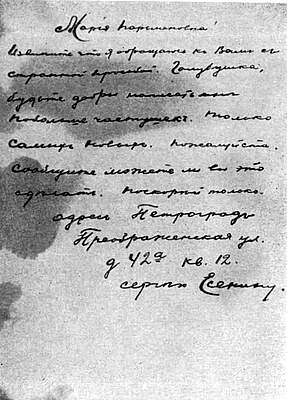 Марія Парьменовна!
Извините что я обращаюсь къ Вам съ
странной прозьбой. Голубушка,
будьте добры написать мне
побольше частушек. Только
самых новых. Пожалуйста.
Сообщите можете ли вы это
сделать. Поскорей только.
адрес Петроградъ
Преображенская ул.
д 42а кв. 12.
Сергею Есенину.